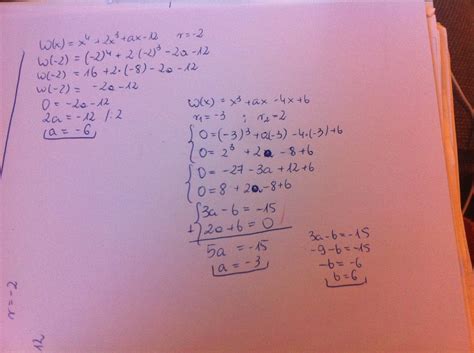 W(x) = x⁴ + 2x³ + ax - 12    r = -2
W(-2) = (-2)⁴ + 2·(-2)³ - 2a - 12
W(-2) = 16 + 2·(-8) - 2a - 12
W(-2) = -2a - 12
0 = -2a - 12
2a = -12 /:2
a = -6
W(x) = x³ + ax - 4x + b
r₁ = -3 ; r₂ = 2
0 = (-3)³ + a(-3) - 4·(-3) + b
0 = 2³ + 2a - 8 + b
0 = -27 - 3a + 12 + b
0 = 8 + 2a - 8 + b
3a - b = -15
+ 2a + b = 0
5a = -15
a = -3
3a - b = -15
-9 - b = -15
-b = -6
b = 6
r = -2
12